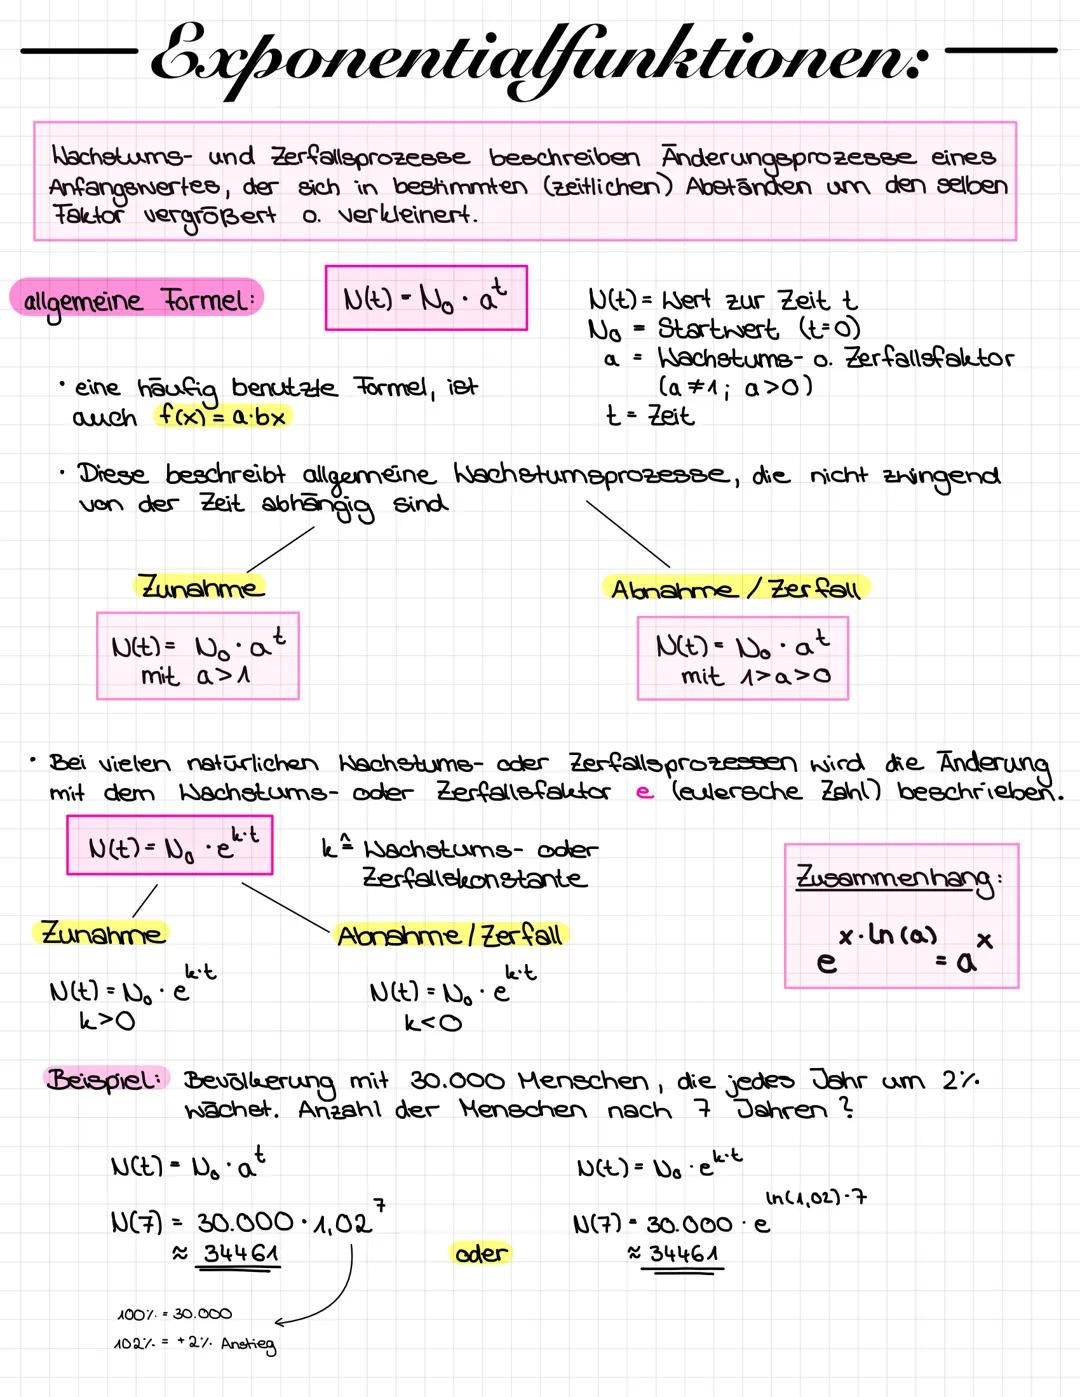 Exponentialfunktionen:
Wachstums- und Zerfallsprozesse beschreiben Änderungsprozesse eines
Anfangswertes, der sich in bestimmten (zeitlichen) Abständen um den selben
Faktor vergrößert o. verkleinert.
allgemeine Formel:
N(t) = N₀ · aᵗ
N(t) = Wert zur Zeit t
N₀ = Startwert (t=0)
a = Wachstums- o. Zerfallsfaktor
(a ≠ 1; a>0)
t = Zeit
· eine häufig benutzte Formel, ist
auch f(x) = a·bx
· Diese beschreibt allgemeine Wachstumsprozesse, die nicht zwingend
von der Zeit abhängig sind
Zunahme
N(t) = N₀ · aᵗ
mit a>1
Abnahme / Zerfall
N(t) = N₀ · aᵗ
mit 1>a>0
· Bei vielen natürlichen Wachstums- oder Zerfallsprozessen wird die Änderung
mit dem Wachstums- oder Zerfallsfaktor e (eulersche Zahl) beschrieben.
N(t) = N₀ · e^k·t
k ≙ Wachstums- oder
Zerfallskonstante
Zusammenhang:
e^x·ln(a) = a^x
Zunahme
N(t) = N₀ · e^k·t
k>0
Abnahme / Zerfall
N(t) = N₀ · e^k·t
k<0
Beispiel: Bevölkerung mit 30.000 Menschen, die jedes Jahr um 2%
wächst. Anzahl der Menschen nach 7 Jahren ?
N(t) = N₀ · aᵗ
N(7) = 30.000 · 1,02⁷
≈ 34461
oder
N(t) = N₀ · e^k·t
N(7) = 30.000 · e^ln(1,02)·7
≈ 34461
100% = 30.000
102% = +2% Anstieg